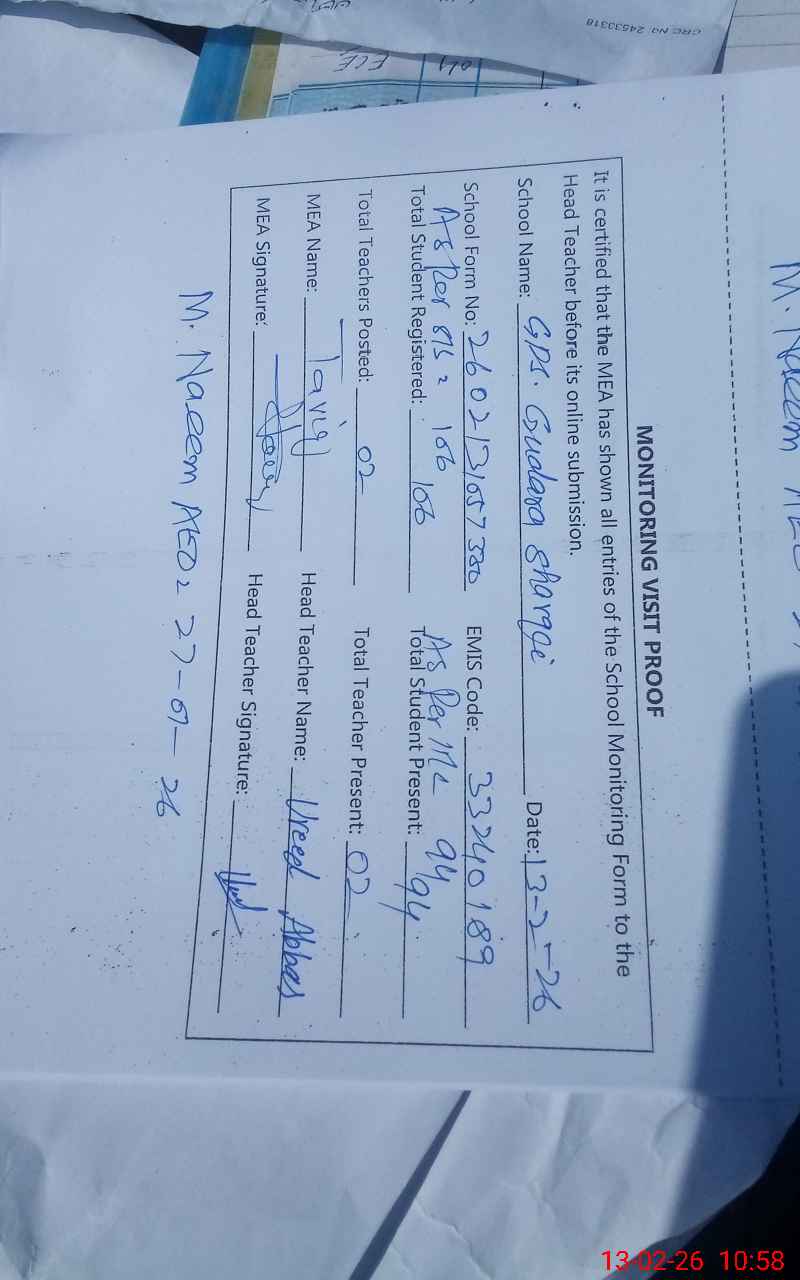 CRC No: 24533318
ECE
M. Naeem AEO
MONITORING VISIT PROOF
It is certified that the MEA has shown all entries of the School Monitoring Form to the
Head Teacher before its online submission.
School Name: GPS. Gudara Sharqqi Date: 13-2-26
School Form No: EMIS Code: 33240189
As Per SIS = 106 As Per MC 94
Total Student Registered: 106 Total Student Present: 94
Total Teachers Posted: 02 Total Teacher Present: 02
MEA Name: Tariq Head Teacher Name: Abbas
MEA Signature: Head Teacher Signature:
M. Naeem AEO = 27-01-26
13-02-26 10:58